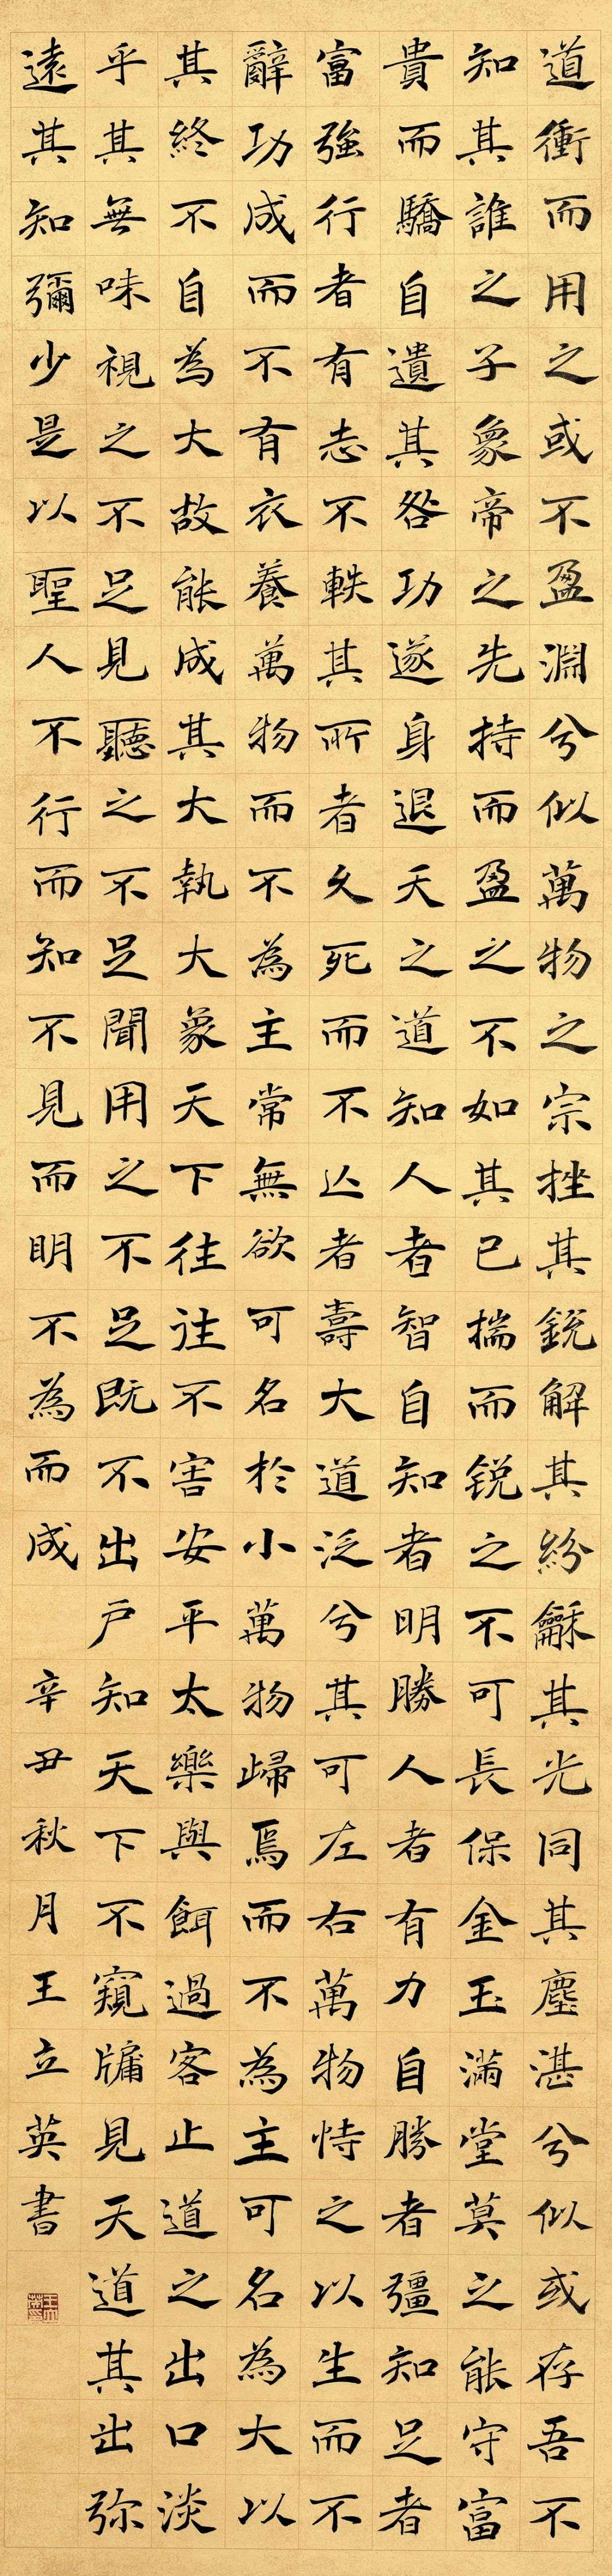 道衝而用之或不盈淵兮似萬物之宗挫其鋭解其紛龢其光同其塵湛兮似或存吾不
知其誰之子象帝之先持而盈之不如其已揣而锐之不可長保金玉滿堂莫之能守富
貴而驕自遺其咎功遂身退天之道知人者智自知者明勝人者有力自勝者彊知足者
富強行者有志不軼其所者久死而不亾者壽大道泛兮其可左右萬物恃之以生而不
辭功成而不有衣養萬物而不為主常無欲可名於小萬物歸焉而不為主可名為大以
其終不自為大故能成其大執大象天下往往不害安平太樂與餌過客止道之出口淡
乎其無味視之不足見聽之不足聞用之不足既不出户知天下不窺牖見天道其出弥
遠其知彌少是以聖人不行而知不見而明不為而成 辛丑秋月王立英書